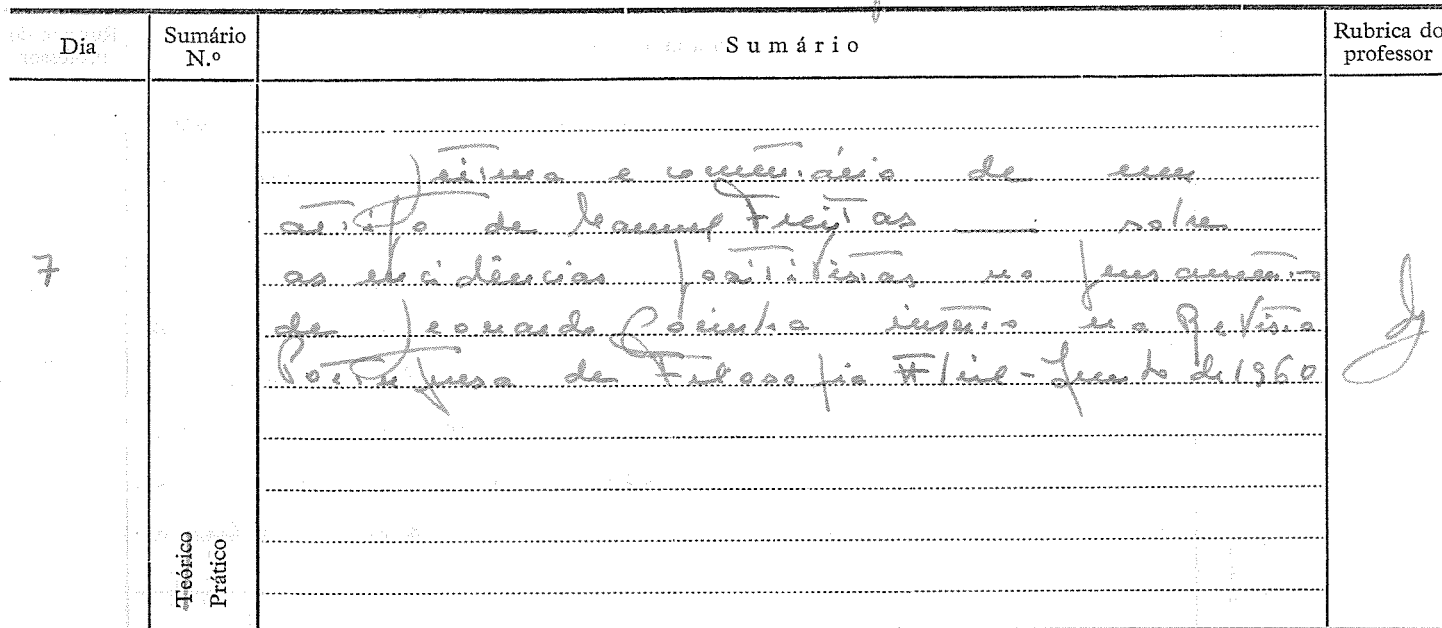 Dia
Sumário N.º
Sumário
Rubrica do professor
7
Leitura e comentário de um
artigo de Manuel Freitas — sobre
as incidências positivistas no pensamento
de Leonardo Coimbra inserto na Revista
Portuguesa de Filosofia Abril-Junho de 1960
Teórico
Prático